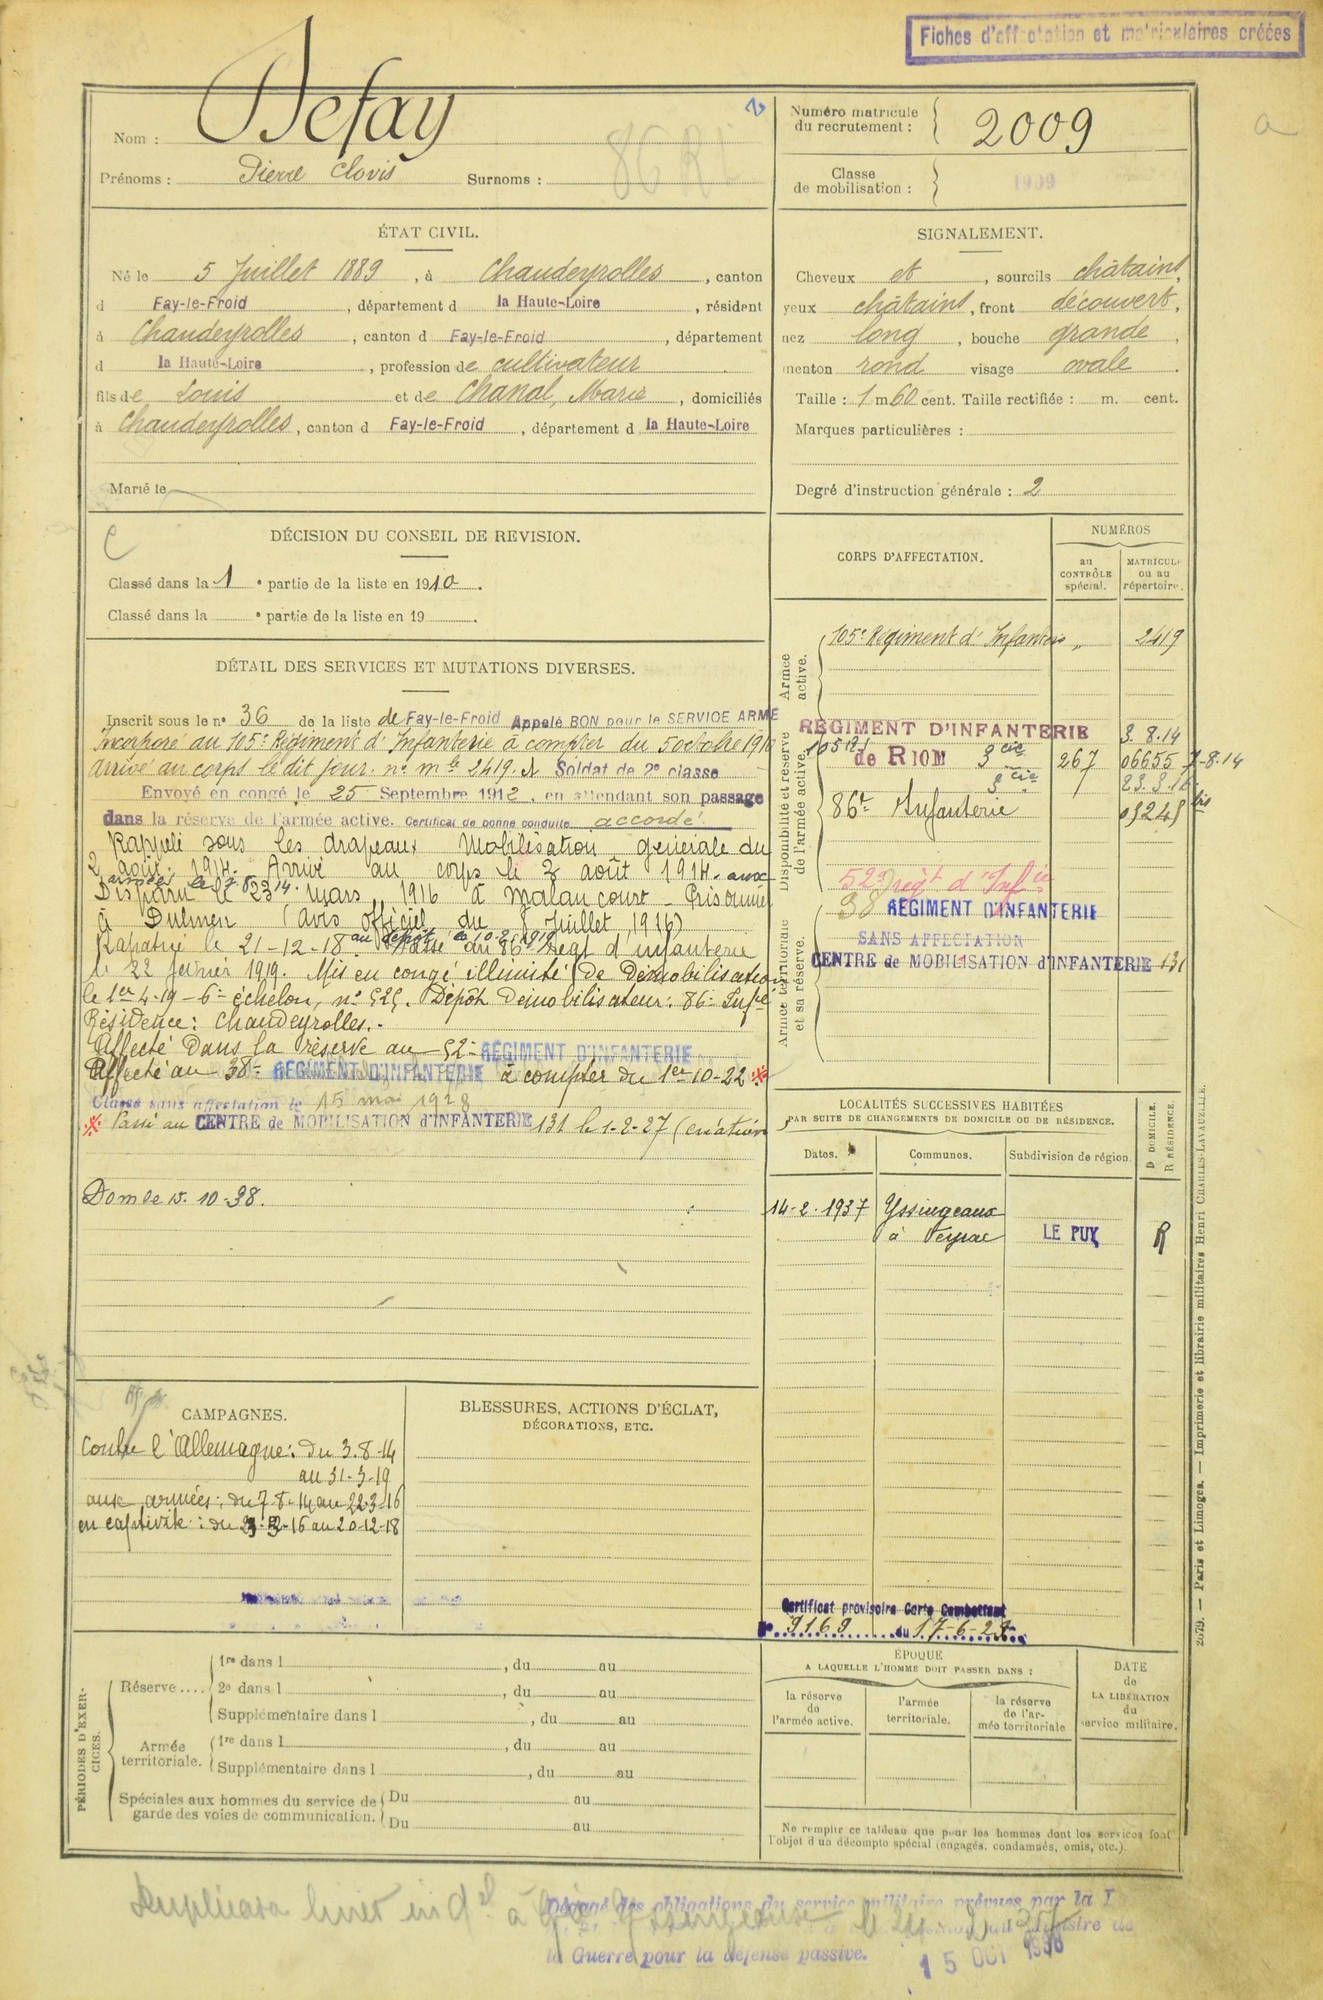 Fiches d'affectation et matriculaires créées
Nom : Defay
Prénoms : Pierre Clovis Surnoms :
86 RI
Numéro matricule
du recrutement : 2009
Classe
de mobilisation : 1909
ÉTAT CIVIL.
Né le 5 Juillet 1889, à Chaudeyrolles, canton
d Fay-le-Froid, département d la Haute-Loire, résident
à Chaudeyrolles, canton d Fay-le-Froid, département
d la Haute-Loire, profession de cultivateur
fils de Louis et de Chanal, Marie, domiciliés
à Chaudeyrolles, canton d Fay-le-Froid, département d la Haute-Loire
Marié le
SIGNALEMENT.
Cheveux et, sourcils châtains,
yeux châtains, front découvert,
nez long, bouche grande,
menton rond visage ovale.
Taille : 1 m 60 cent. Taille rectifiée : m. cent.
Marques particulières :
Degré d'instruction générale : 2
DÉCISION DU CONSEIL DE REVISION.
Classé dans la 1 e partie de la liste en 1910.
Classé dans la e partie de la liste en 19 .
DÉTAIL DES SERVICES ET MUTATIONS DIVERSES.
Inscrit sous le n° 36 de la liste de Fay-le-Froid Appelé BON pour le SERVICE ARMÉ
Incorporé au 105e Régiment d'Infanterie à compter du 5 octobre 1910
arrivé au corps le dit jour. n° mle 2419. Soldat de 2e classe
Envoyé en congé le 25 Septembre 1912, en attendant son passage
dans la réserve de l'armée active. Certificat de bonne conduite accordé.
Rappelé sous les drapeaux Mobilisation générale du
2 août 1914. Arrivé au corps le 3 août 1914. aux
armées le 7 8 14.
Disparu le 23 mars 1916 à Malancourt - Prisonnier
à Dulmen (avis officiel du 8 Juillet 1916)
Rapatrié le 21-12-18 au dépôt le 10-2-1919 Passé au 86e Régt d'infanterie
le 22 février 1919. Mis en congé illimité de Démobilisation
le 1er 4-19 - 6e échelon, n° 525. Dépôt Démobilisateur: 86e Infie
Résidence: Chaudeyrolles.
Affecté Dans la réserve au 52e RÉGIMENT D'INFANTERIE
Affecté au 38e RÉGIMENT D'INFANTERIE à compter du 1er 10-22 *
Classé sans affectation le 15 mai 1928
* Passé au CENTRE de MOBILISATION d'INFANTERIE 131 le 1-8-27 (création
Dom le 15.10-38.
CORPS D'AFFECTATION.
NUMÉROS
au CONTRÔLE spécial.
MATRICULE ou au répertoire.
Armée active.
105e Régiment d'Infanterie " 2419
Disponibilité et réserve de l'armée active.
RÉGIMENT D'INFANTERIE 3.8.14
de RIOM 3 cie 267 06655 7-8-14
23.3.16
86e Infanterie 05245 bis
52e régt d'Infie
Armée territoriale et sa réserve.
38 RÉGIMENT D'INFANTERIE
SANS AFFECTATION
CENTRE de MOBILISATION d'INFANTERIE 131
LOCALITÉS SUCCESSIVES HABITÉES
PAR SUITE DE CHANGEMENTS DE DOMICILE OU DE RÉSIDENCE.
D DOMICILE.
R RÉSIDENCE.
Dates. Communes. Subdivision de région.
14-2-1937 Yssingeaux
à Veyrac LE PUY R
CAMPAGNES.
Contre l'Allemagne: du 3.8-14
au 31-3-19
aux armées: du 7-8-14 au 22-3-16
en captivité: du 23-3-16 au 20-12-18
BLESSURES, ACTIONS D'ÉCLAT,
DÉCORATIONS, ETC.
Certificat provisoire Carte Combattant
N° 9169 du 17-6-28
PÉRIODES D'EXERCICES.
Réserve....
1re dans l , du au
2e dans l , du au
Supplémentaire dans l , du au
Armée territoriale.
1re dans l , du au
Supplémentaire dans l , du au
Spéciales aux hommes du service de
garde des voies de communication.
Du au
Du au
ÉPOQUE
A LAQUELLE L'HOMME DOIT PASSER DANS :
la réserve de l'armée active.
l'armée territoriale.
la réserve de l'armée territoriale
DATE de LA LIBÉRATION du service militaire.
Ne remplir ce tableau que pour les hommes dont les services font
l'objet d'un décompte spécial (engagés, condamnés, omis, etc.).
2079. — Paris et Limoges. — Imprimerie et librairie militaires Henri CHARLES-LAVAUZELLE.
Duplicata livret indel à Yssingeaux le
Dégagé des obligations du service militaire prévues par la
la Guerre pour la défense passive.
15 OCT 1938